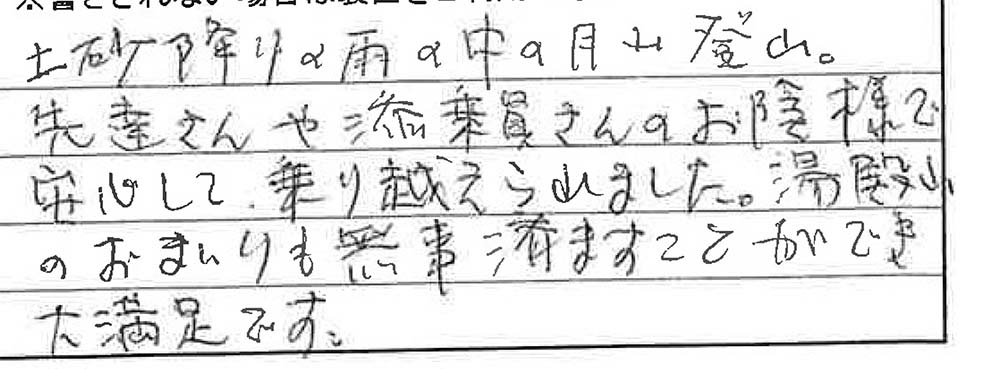 土砂降りの雨の中の月山登山。
先達さんや添乗員さんのお陰様で
安心して乗り越えられました。湯殿山
のおまいりも無事済ますことができ
大満足です。